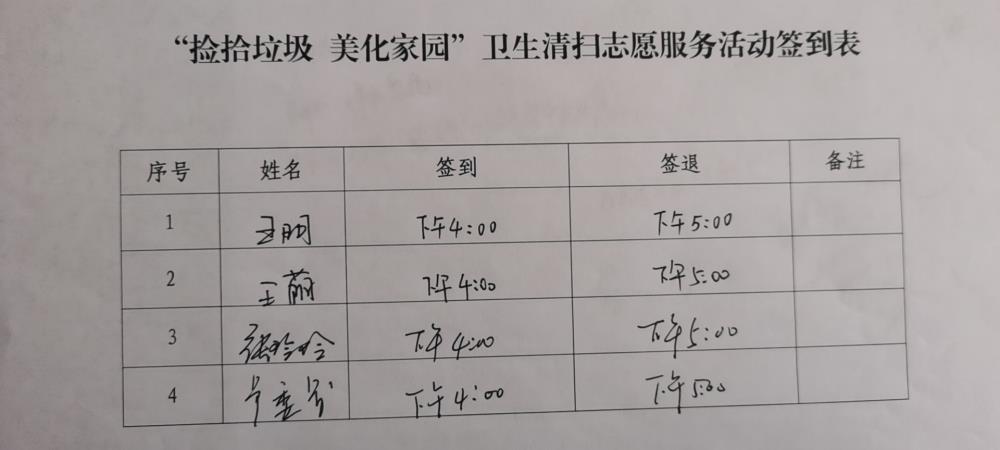 “捡拾垃圾 美化家园”卫生清扫志愿服务活动签到表
序号 姓名 签到 签退 备注
1 王明 下午4:00 下午5:00
2 王萌 下午4:00 下午5:00
3 张玲玲 下午4:00 下午5:00
4 下午4:00 下午5:00